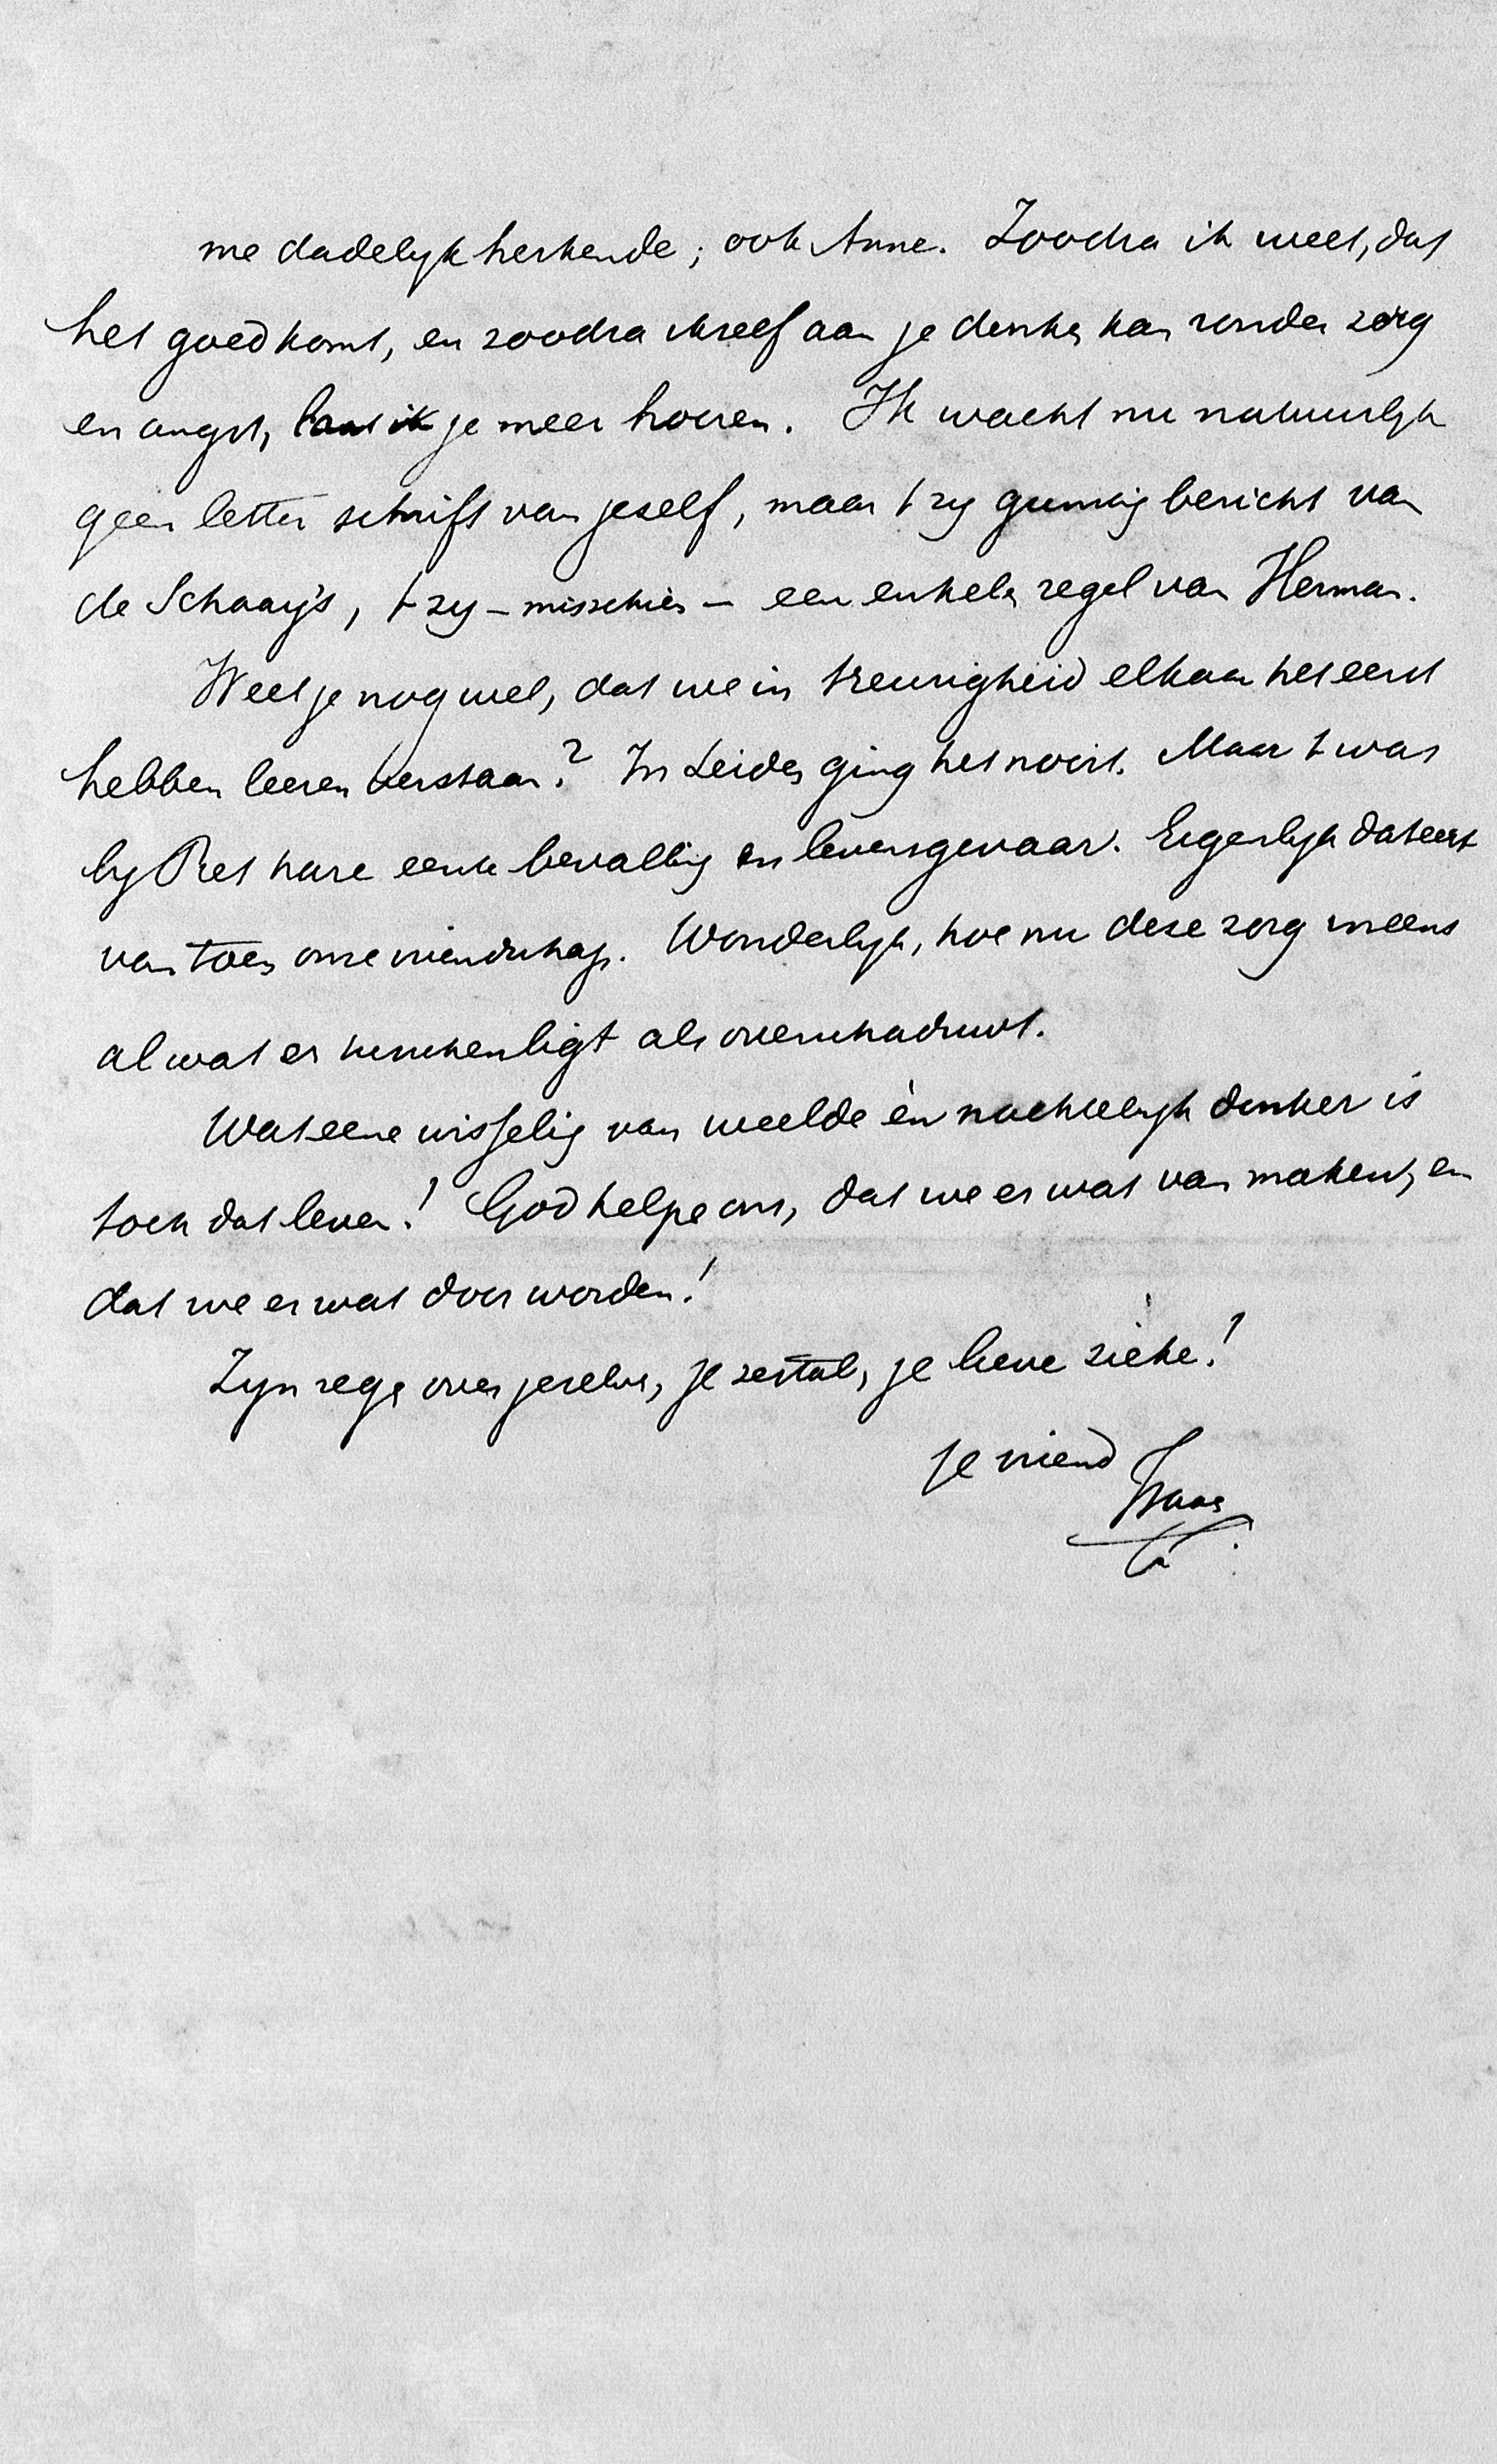 me dadelyk herkende; ook Anne. Zoodra ik weet, dat
het goed komt, en zoodra ikzelf aan je denken kan zonder zorg
en angst, laat ik je meer hooren. Ik wacht nu natuurlyk
geen letter schrift van jezelf, maar t zy gunstig bericht van
de Schaay's, t zy – misschien – een enkele regel van Herman.
Weet je nog wel, dat we in treurigheid elkaar het eerst
hebben leeren verstaan? In Leiden ging het nooit. Maar t was
by Piet hare eerste bevalling en levensgevaar. Eigenlyk dateert
van toen onze vriendschap. Wonderlyk, hoe nu deze zorg ineens
al wat er tusschenligt als overschaduwt.
Wat eene wisseling van weelde èn nachtelyk donker is
toch dat leven! God helpe ons, dat we er wat van maken, en
dat we er wat door worden!
Zyn zegen over jezelve, je zestal, je lieve zieke!
je vriend